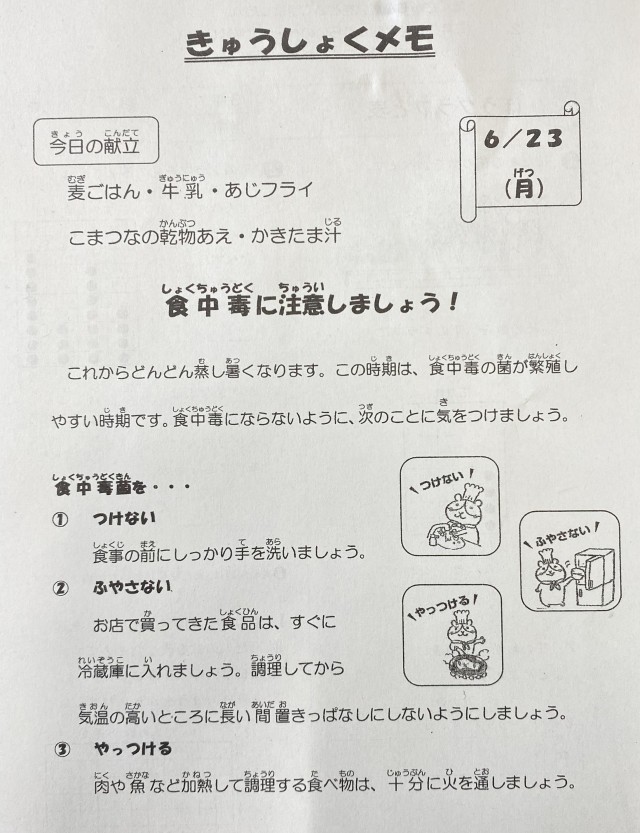 きゅうしょくメモ
6／23
（月）
今日の献立
麦ごはん・牛乳・あじフライ
こまつなの乾物あえ・かきたま汁
食中毒に注意しましょう！
これからどんどん蒸し暑くなります。この時期は、食中毒の菌が繁殖し
やすい時期です。食中毒にならないように、次のことに気をつけましょう。
食中毒菌を・・・
① つけない
食事の前にしっかり手を洗いましょう。
つけない！
② ふやさない
ふやさない！
お店で買ってきた食品は、すぐに
冷蔵庫に入れましょう。調理してから
やっつける！
気温の高いところに長い間置きっぱなしにしないようにしましょう。
③ やっつける
肉や魚など加熱して調理する食べ物は、十分に火を通しましょう。